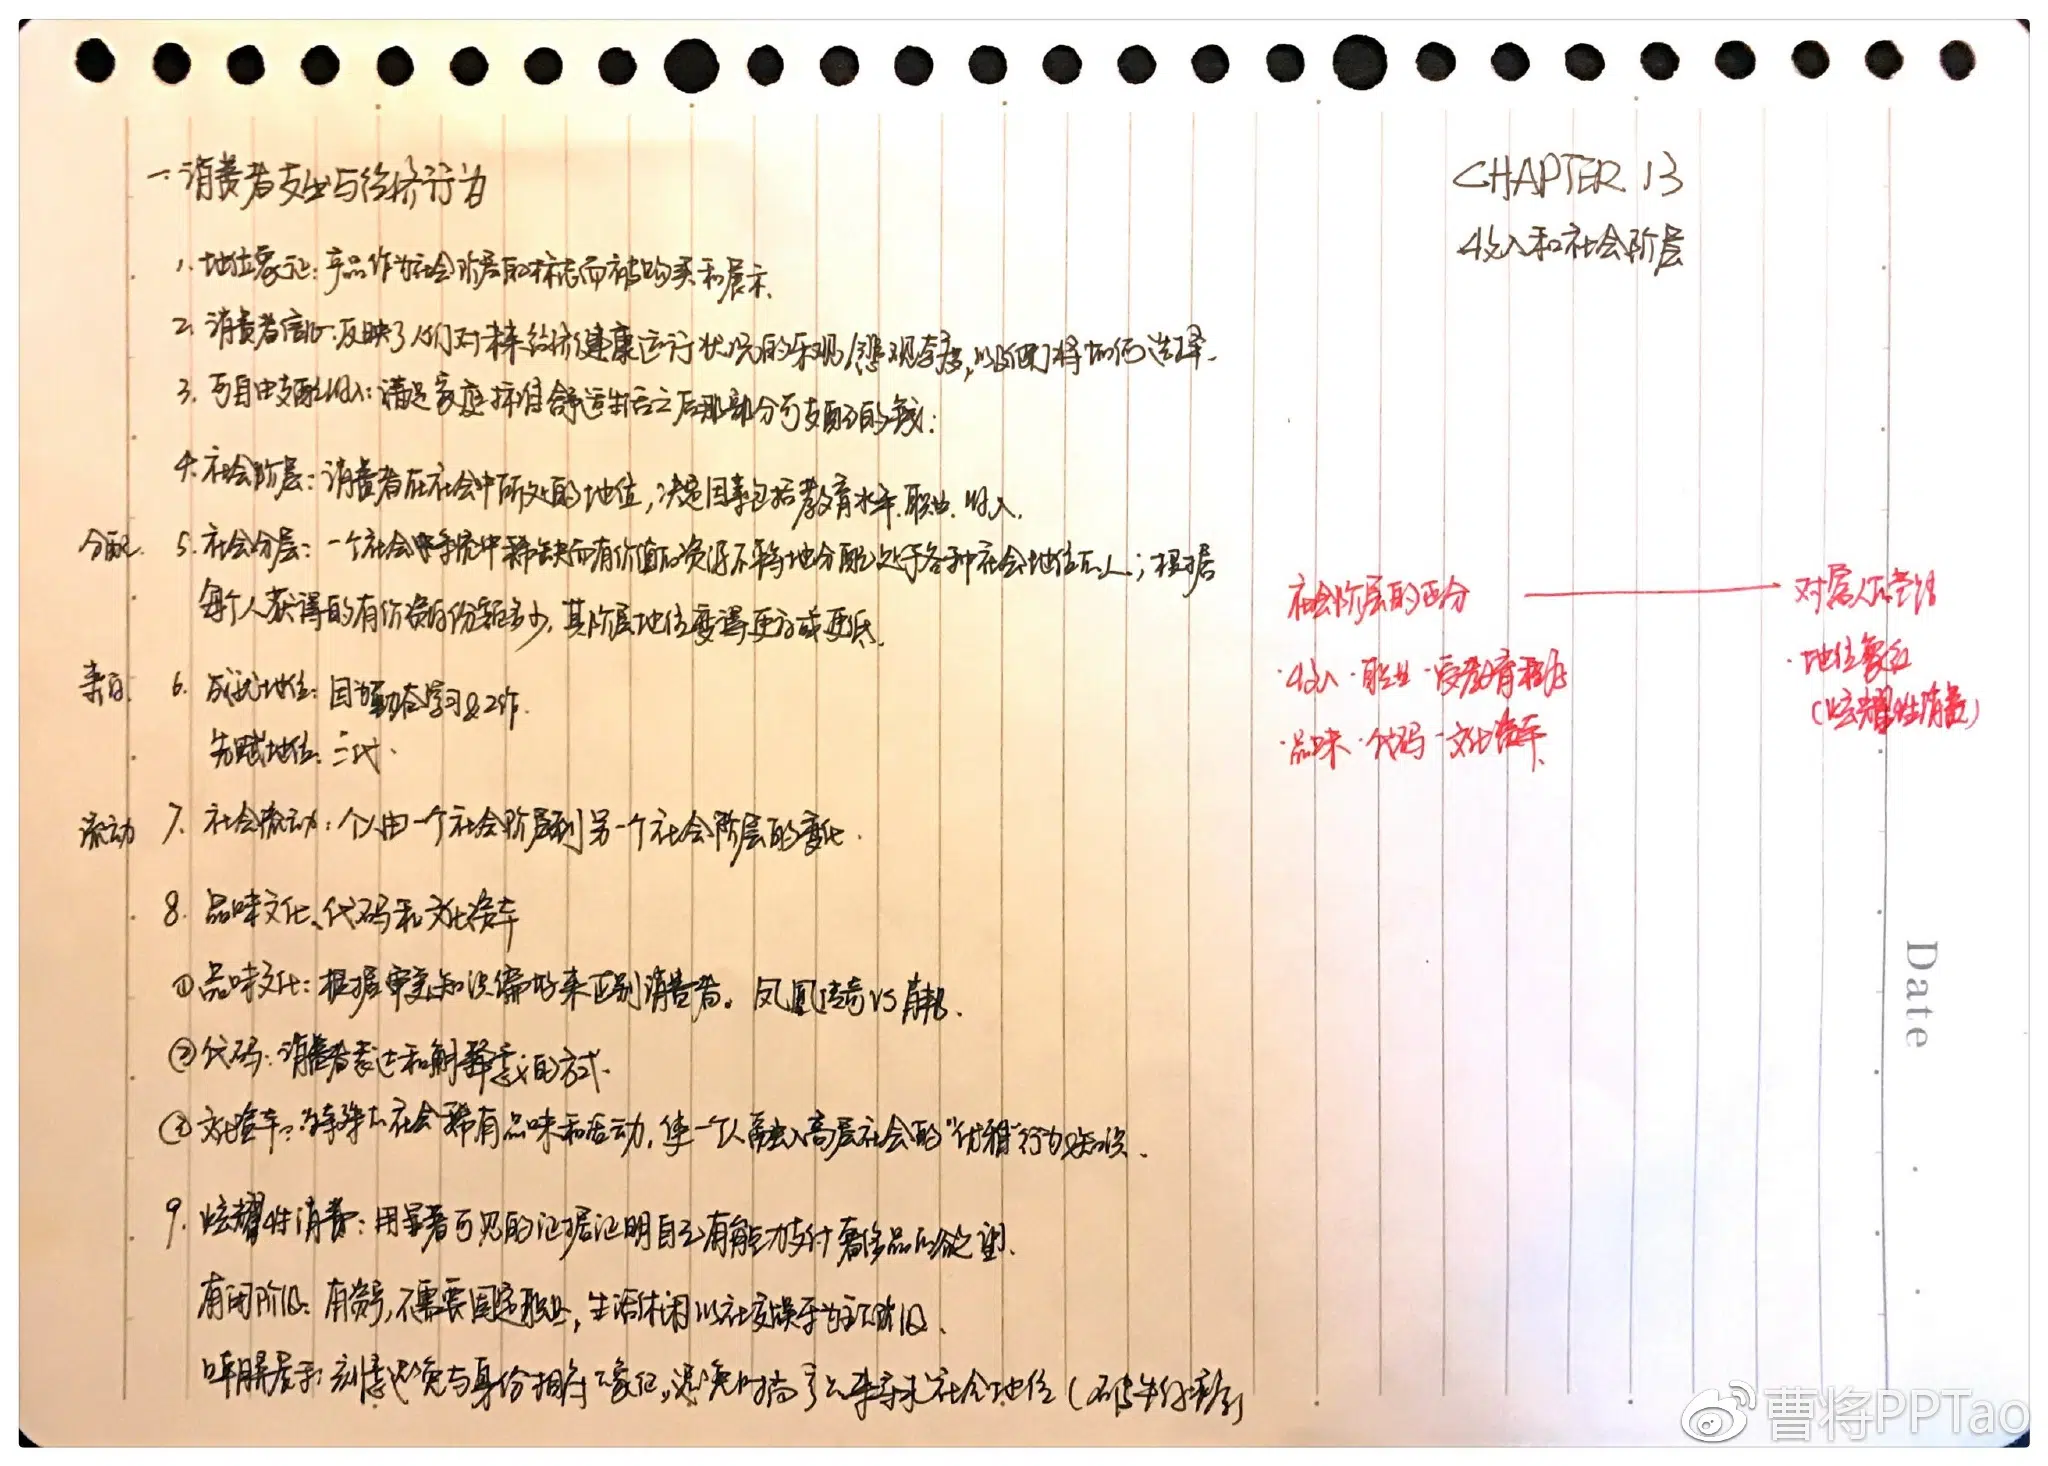 CHAPTER 13
收入和社会阶层
一.消费者支出与经济行为
1. 地位象征:产品作为社会阶层的标志而被购买和展示.
2. 消费者信心:反映了人们对未来经济健康运行状况的乐观/悲观态度,以及他们将如何选择.
3. 可自由支配收入:满足家庭标准舒适生活之后那部分可支配的钱;
4. 社会阶层:消费者在社会中所处的地位,决定因素包括教育水平.职业.收入.
分配. 5. 社会分层:一个社会中稀缺而有价值的资源不平等地分配给处于各种社会地位的人;根据
每个人获得的有价资源份额多少,其阶层地位变得更高或更低.
来自. 6. 成就地位:因为勤奋学习&工作.
先赋地位:二代.
流动 7. 社会流动:个人由一个社会阶层到另一个社会阶层的变化.
8. 品味文化、代码和文化资本
①品味文化:根据审美知识偏好来区别消费者。凤凰传奇VS肖邦.
②代码:消费者表达和解释意义的方式.
②文化资本:特殊的社会稀有品味和活动,使一个人融入高层社会的"优雅"行为&知识.
9. 炫耀性消费:用显著可见的证据证明自己有能力支付奢侈品的欲望.
有闲阶级:有资产,不需要固定职业,生活休闲以社交娱乐为主的阶级.
嘲屏展示:刻意避免与身份相符的象征,避免时尚了来寻求社会地位(破牛仔裤)
社会阶层的区分 → 对富人的营销
·收入 ·职业 ·受教育程度
·品味 ·代码 ·文化资本.
·地位象征
(炫耀性消费)
Date
曹将PPTao